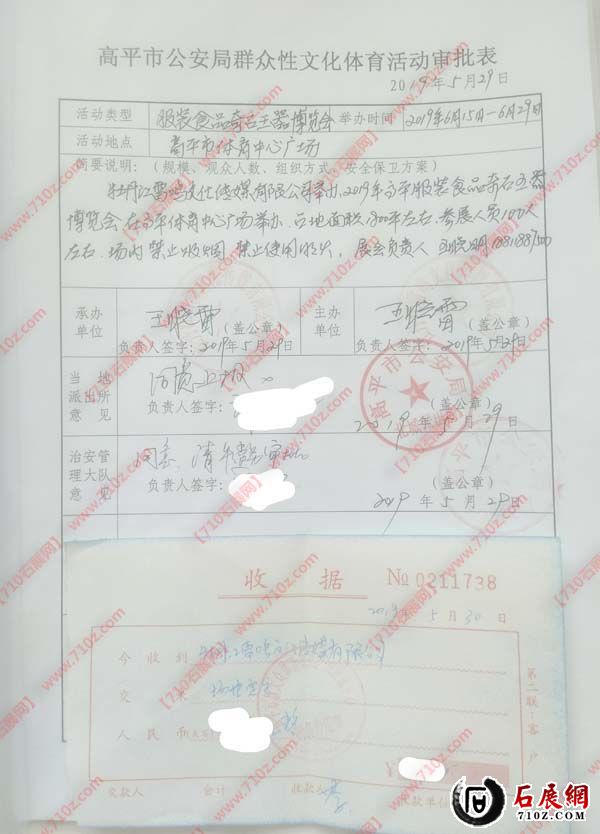 高平市公安局群众性文化体育活动审批表
2019年5月29日
活动类型 服装食品奇石玉器博览会 举办时间 2019年6月15日—6月29日
活动地点 高平市体育中心广场
简要说明：（规模、观众人数、组织方式、安全保卫方案）
牡丹江雷鸣文化传媒有限公司举办，2019年高平服装食品奇石玉器
博览会在高平体育中心广场举办，占地面积800平左右，参展人员100人
左右，场内禁止吸烟，禁止使用明火，展会负责人
承办单位 王晓雷 （盖公章）
负责人签字：2019年5月29日
主办单位 王晓雷 （盖公章）
负责人签字：2019年5月29日
当地派出所意见
负责人签字： （盖公章）
2019年5月29日
高平市公安局
治安管理大队意见 同意，请
负责人签字： （盖公章）
2019年5月29日
收据 No 0211738
2019年5月30日
今收到 有限公司
交来 场地
人民币
¥
交款人 会计 收款人 收款单位
第二联：客户
【710石展网】
www.710z.com
石展網
710Z.COM